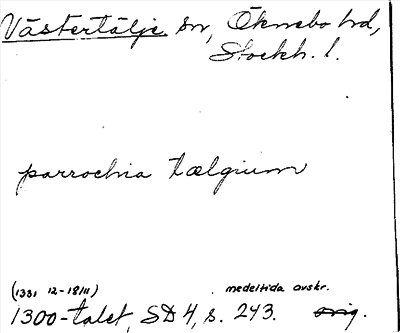 Västertälje sn, Öknebo hd,
Stockh. l.
parrochia tælgium
(1331 12-18/11) medeltida avskr.
1300-talet, SD 4, s. 243. orig.